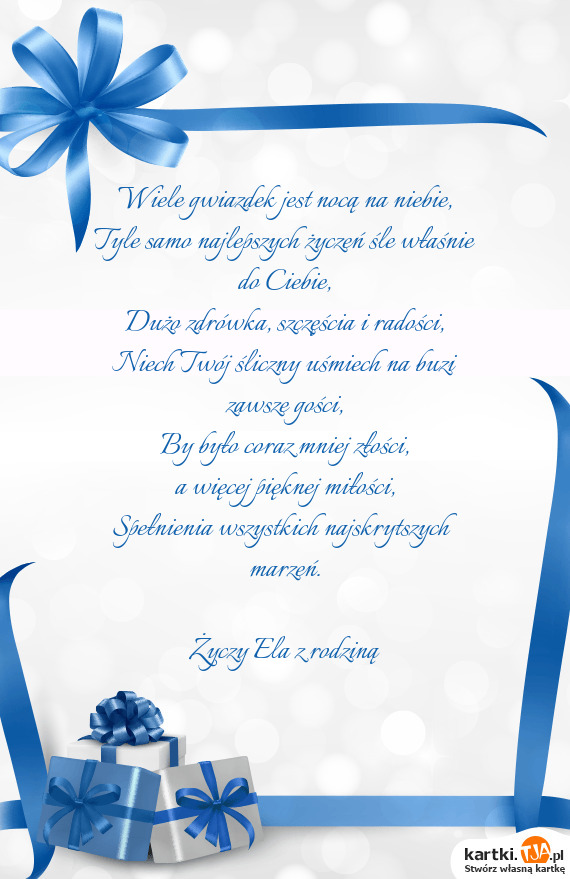 Wiele gwiazdek jest nocą na niebie,
Tyle samo najlepszych życzeń śle właśnie
do Ciebie,
Dużo zdrówka, szczęścia i radości,
Niech Twój śliczny uśmiech na buzi
zawszę gości,
By było coraz mniej złości,
a więcej pięknej miłości,
Spełnienia wszystkich najskrytszych
marzeń.
Życzy Ela z rodziną
kartki.TJA.pl
Stwórz własną kartkę